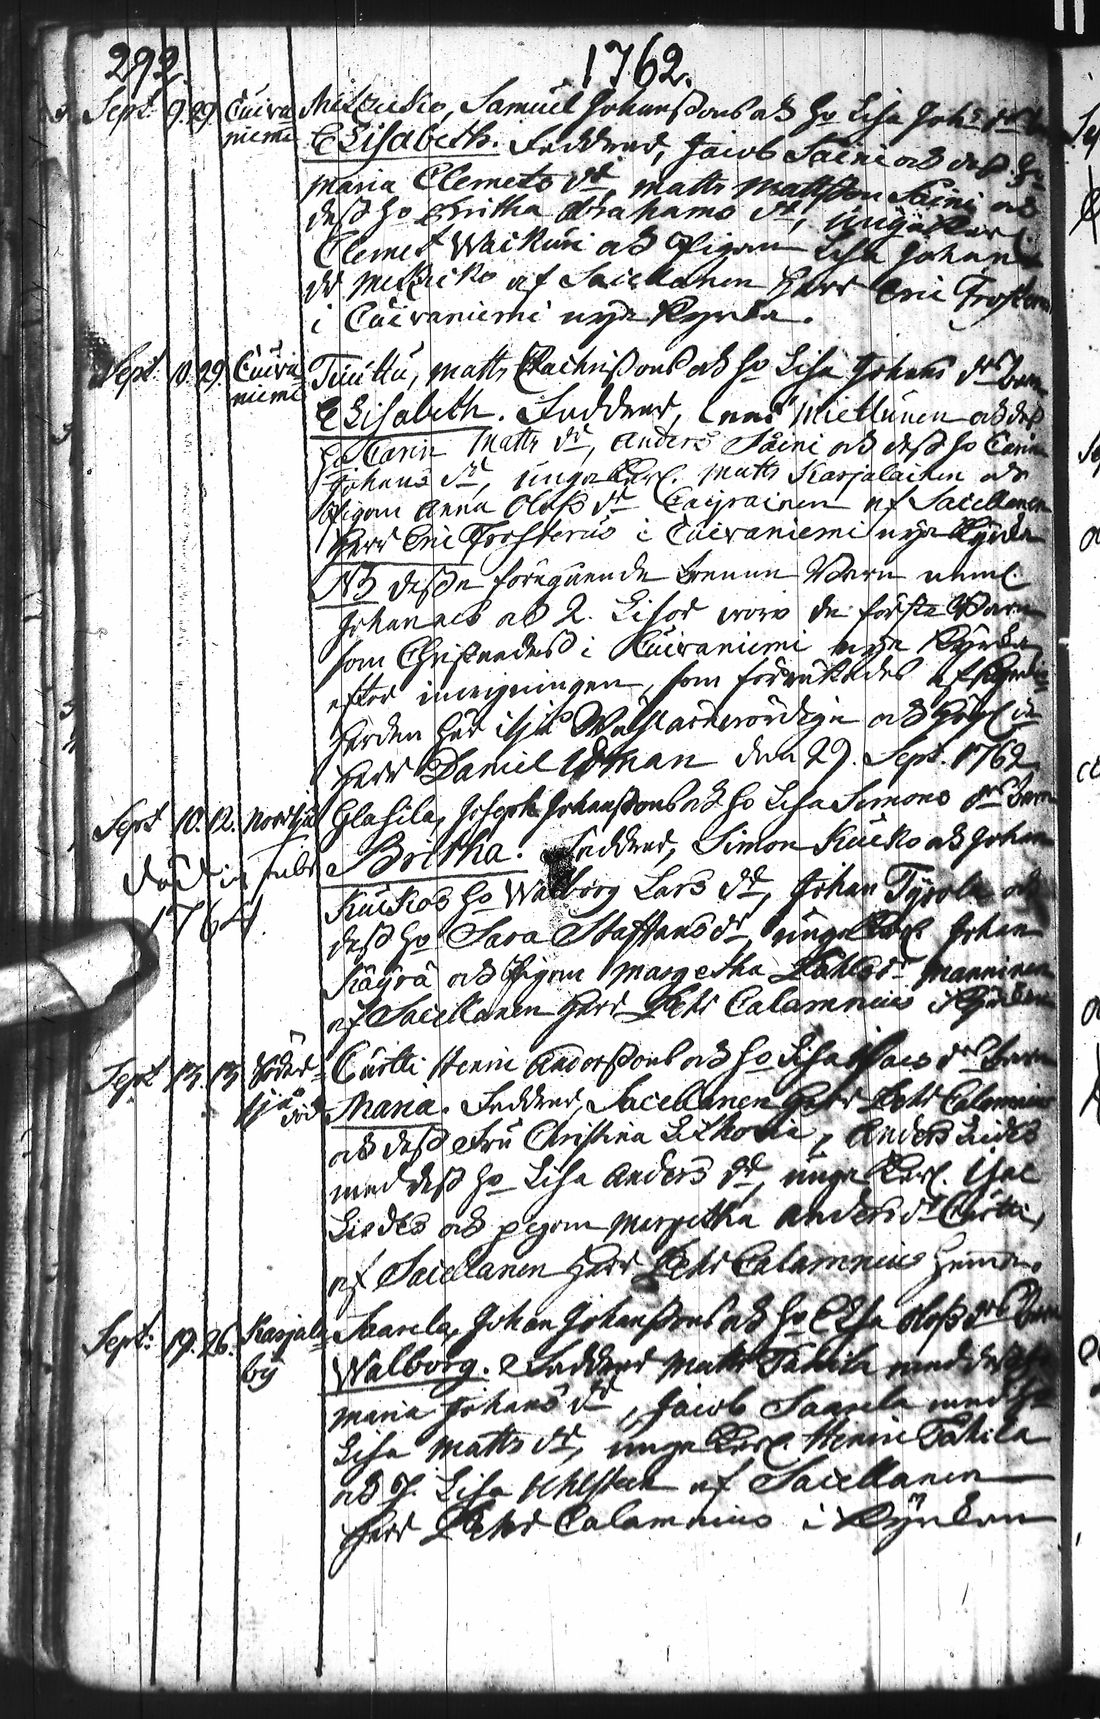 292.
1762.
Sept. 9. 29. Cuiva
niemi
Samuel Johanssons och ho Lisa Joh: dr barn
Elisabeth. Faddrar, Jacob Saini och dess ho
Maria Clemets dr, Matts Mattsson Saini och
dess ho Britha Abrahams dr, unge Karl.
Clemet Waikuri och Pigan Lisa Johans
dr af Sacellanen Herr Eric Frosterus
i Cuivaniemi nya Kyrka.
Sept. 10. 29. Cuiva
niemi
Tuuttu, Matts Zachrissons och ho Lisa Johans drs barn
Elisabeth. Faddrar, Miettunen och dess
ho Carin Matts dr, Anders Saini och dess ho Carin
Johans dr, unge Karl. Matts Karjalainen och
Pigan Anna Olofs dr af Sacellanen
Herr Eric Frosterus i Cuivaniemi nya Kyrka
NB desse föregående trenne Barn neml.
Johannes och 2. Lisor woro de första Barn
som Christnades i Cuivaniemi nya Kyrka
efter inwigningen, som förrättades af Kyrko
herden här i Ijo och
Herr Daniel Ulman den 29. Sept. 1762
Sept. 10. 12. Norrijå
död in febr
1764.
Glahila, Joseph Johanssons och ho Lisa Simons drs barn
Britha. Faddrar, Simon Kuuko och Johan
Kuukos ho Walborg Lars dr, Johan Tyrola och
dess ho Sara Staffans dr, unge Karl. Johan
Käyrä och Pigan Margetha Påhls dr Manninen
af Sacellanen Herr Petr Calamnius i Kyrkan
Sept. 13. 13. Söder-
ijå död
Curtti Henric Anderssons och ho Lisa Isacs drs barn
Maria. Faddrar, Sacellanen Herr Petr Calamnius
och dess Fru Christina Lithovia, Anders Liedes
med dess ho Lisa Anders dr, unge Karl. Isac
Liedes och pigan Margetha Anders dr Curtti,
af Sacellanen Herr Petr Calamnius hemma.
Sept. 19. 26. Karjala
by
Saarela, Johan Johanssons och ho Elsa Olofs drs barn
Walborg. Faddrar Matts Pahkila med dess ho
Maria Johans dr, Jacob Saarela med ho
Lisa Matts dr, unge Karl. Henric Pahkila
och P. Lisa Uhlsteen af Sacellanen
Herr Petr Calamnius i Kyrkan